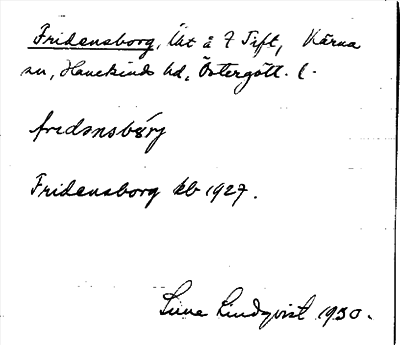 Fridensborg, Lht å 7 Tift, Kärna
sn, Hanekinds hd, Östergötl. l.
fridənsbór̨y
Fridensborg kb 1927.
Sune Lindqvist 1930.